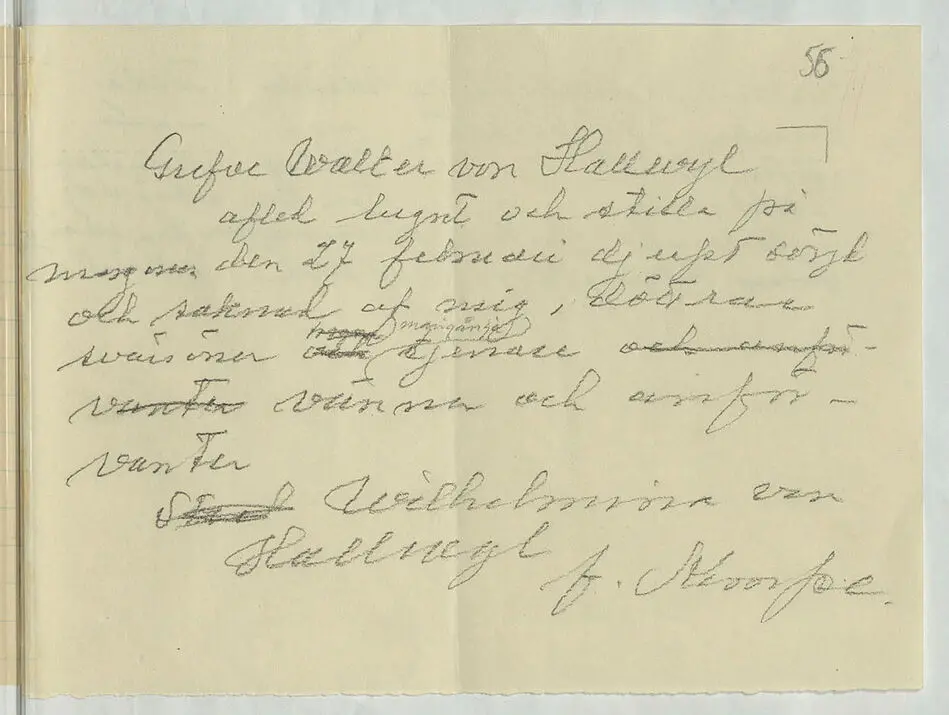 56
Grefve Walter von Hallwyl
afled lugnt och stilla på
morgonen den 27 februari djupt sörjd
och saknad af mig, döttrar
mångårige
svärsöner och tjenare och anför-
vanter vänner och anför-
vanter
Wilhelmina von
Hallwyl
f. Kempe.